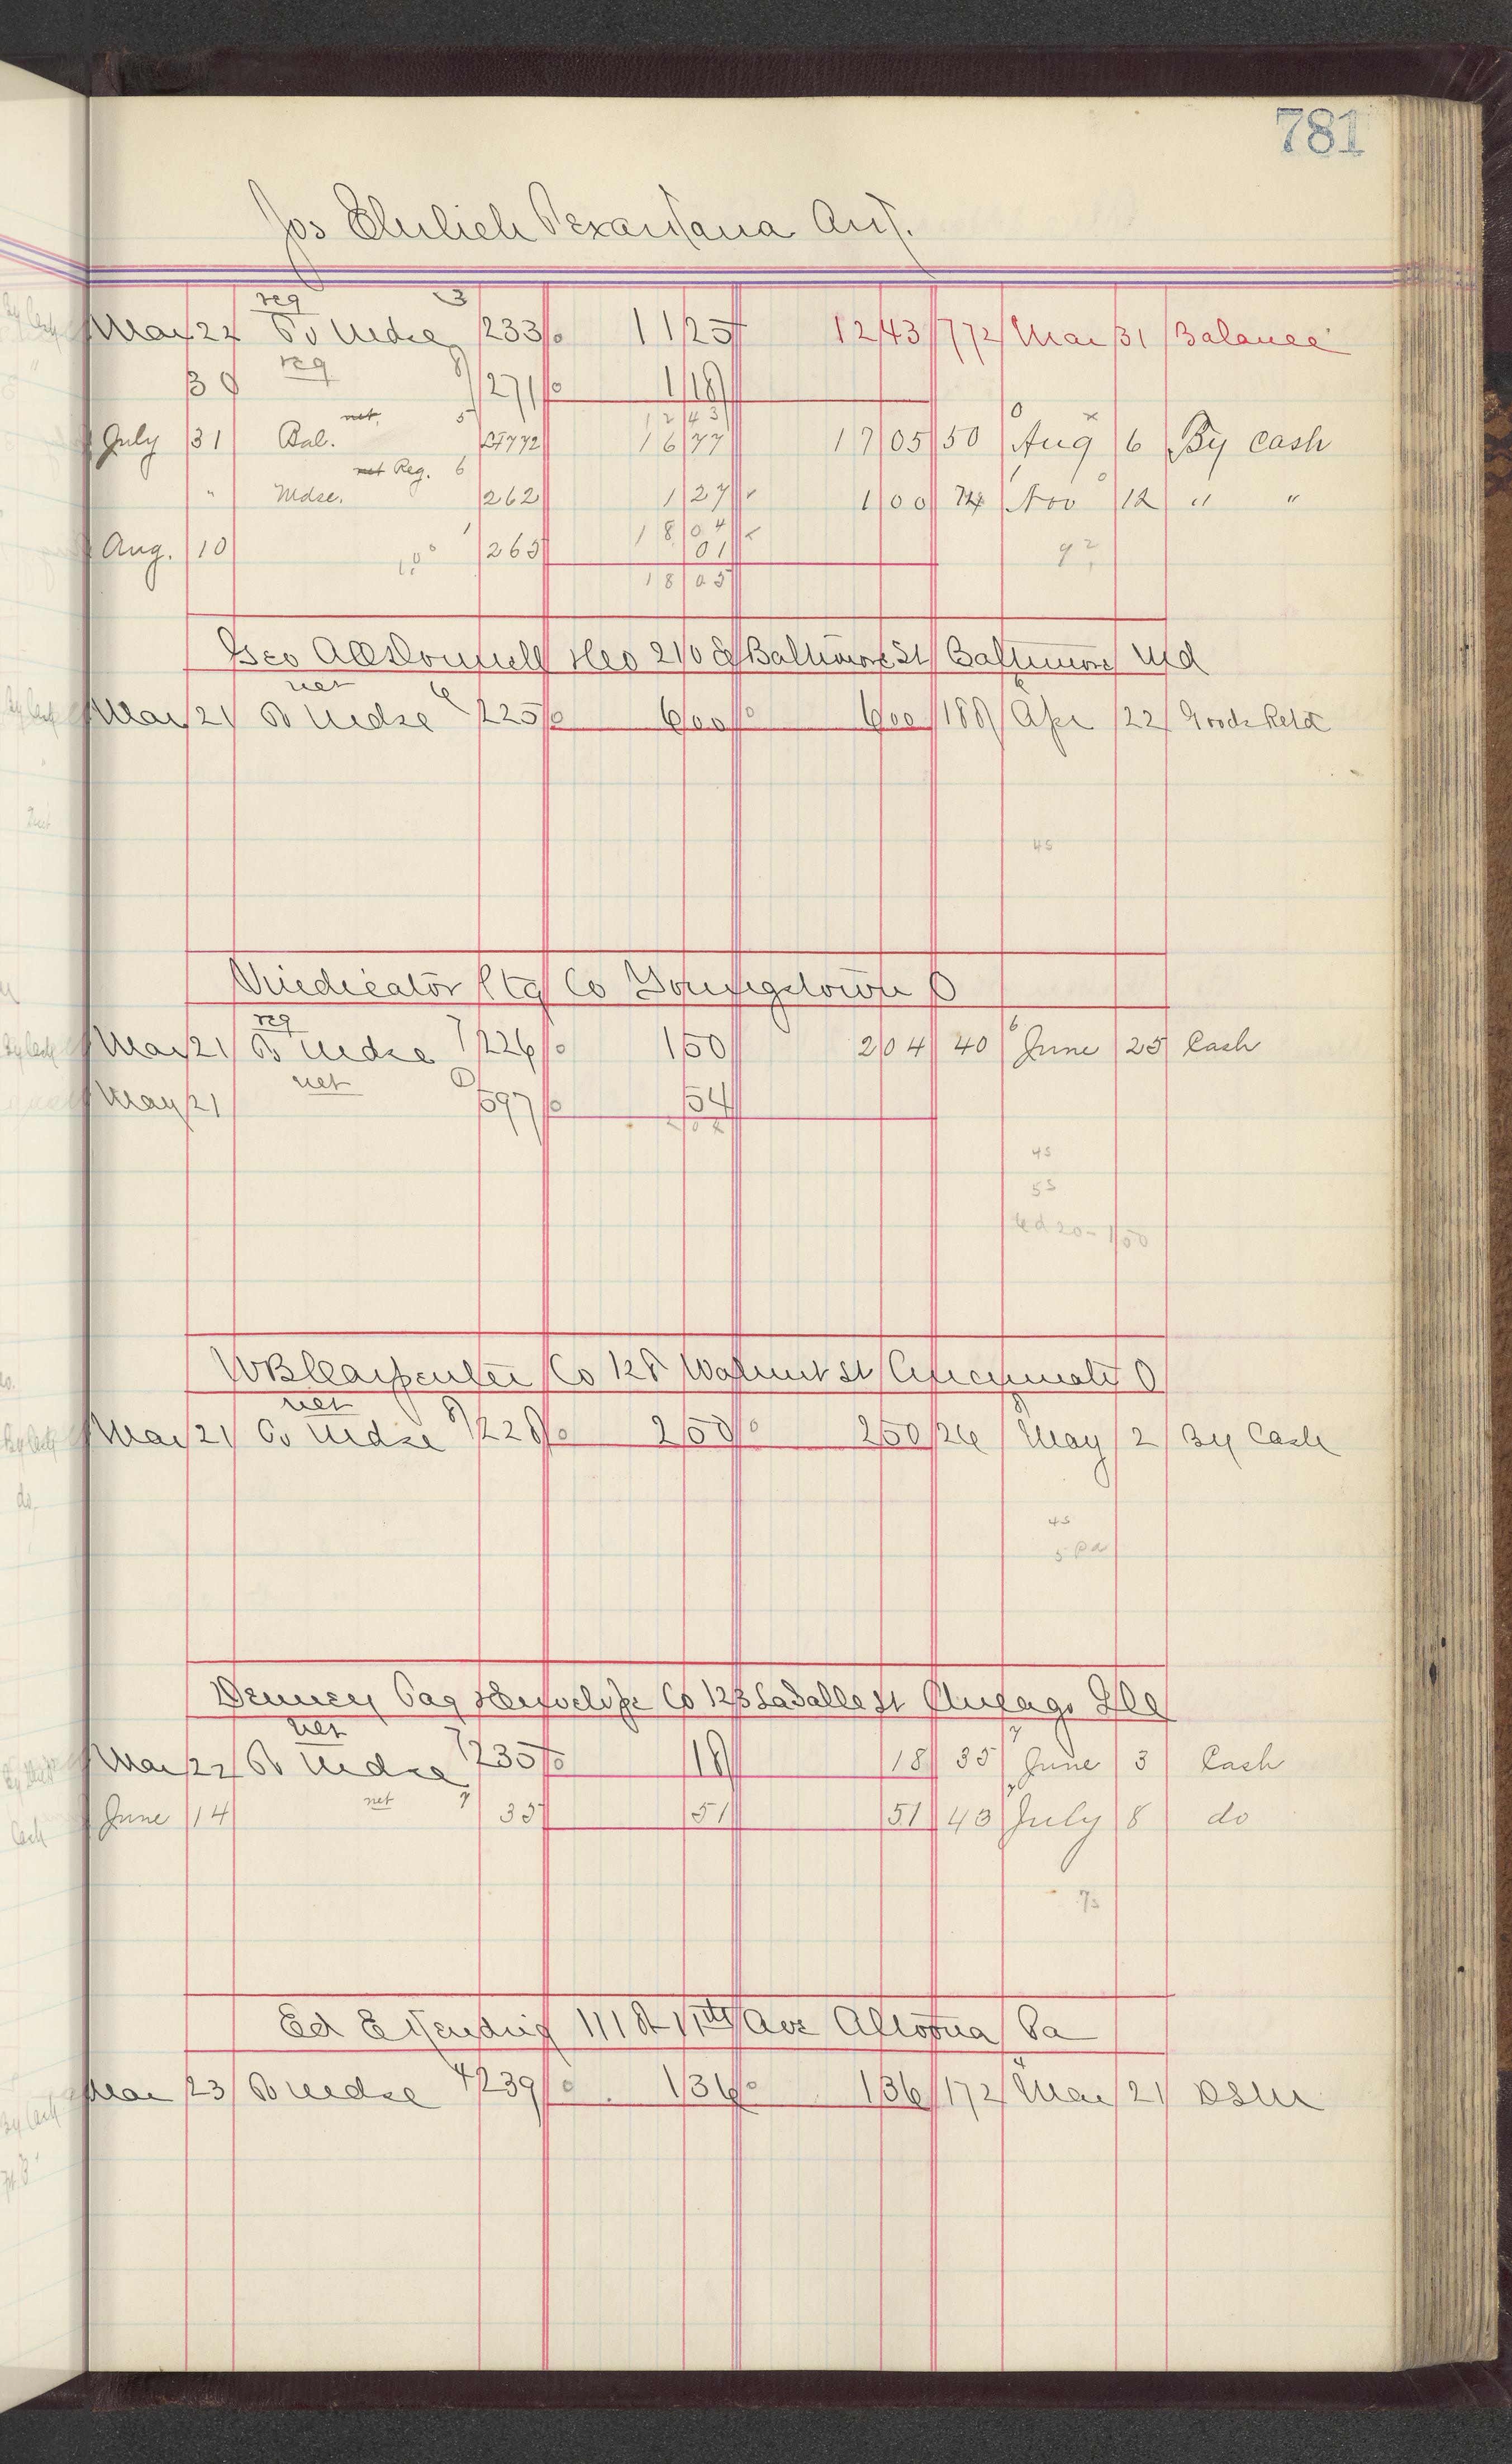 781
Jos Ehrlich Texarkana Ark.
reg 3
Mar 22 To Mdse 233 11 25 12 43 772 Mar 31 Balance
reg 8
30 271 1 18
12 43
net 5
July 31 Bal. LF772 16 77 17 05 50 Aug 6 By Cash
net Reg. 6
" Mdse. 262 1 27 1 00 74 Nov 12 " "
18 04
Aug. 10 265 01
18 05
Geo A 210 E Baltimore St Baltimore Md
net 6
Mar 21 To Mdse 225 6 00 6 00 188 Apr 22 Goods Retd
45
Vindicator Ptg Co Youngstown O
reg 7
Mar 21 To Mdse 226 1 50 2 04 40 June 25 Cash
net
May 21 597 54
2 04
45
55
W B Carpenter Co 128 Walnut St Cincinnati O
net 8
Mar 21 To Mdse 228 2 50 2 50 26 May 2 By Cash
45
Denney Tag & Envelope Co 123 LaSalle St Chicago Ill
net 7
Mar 22 To Mdse 235 18 18 35 June 3 Cash
net 7
June 14 35 51 51 43 July 8 do
75
Ed E 1118-11th Ave Altoona Pa
Mar 23 To Mdse 4 239 1 36 1 36 172 Mar 21 DSM